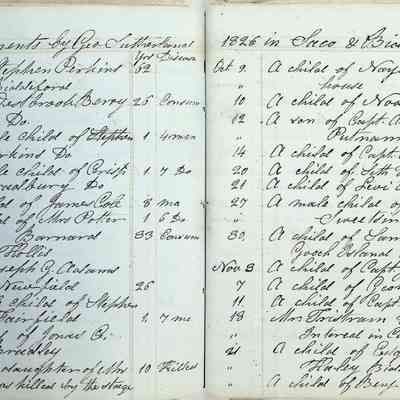 ments by Geo. Sutherland
Yrs Disease
Stephen Perkins 62
Biddeford
Westbrook Berry 25 Consum
Do
le child of Stephen 1 4 mon
erkins Do
le child of Crisp 1 7 Do
radbury Do
ld of James Cole 8 mo
ld of Mrs Porter 1 6 Do
Barnard 33 Consum
Hollis
oseph G. Adams
Newfield 25
child of Stephen
Fairfield 1 7 mo
of Jonas C.
radley
daughter of Mrs 10 Killed
was killed by the stage
1826 in Saco & Bid
Oct 9. A child of Na
" house
10 A child of Noa
12 A son of Capt. A
" Putnam
14 A child of Capt.
20 A child of Seth
21 A child of Levi
27 A male child of
"
30. A child of Sam
Gooch Island
Nov 3 A child of Capt
7 A child of Geor
11. A child of Capt
18 Mrs Tristram
" Interest in C
21 A child of
" Haley Bid
" A child of Benj